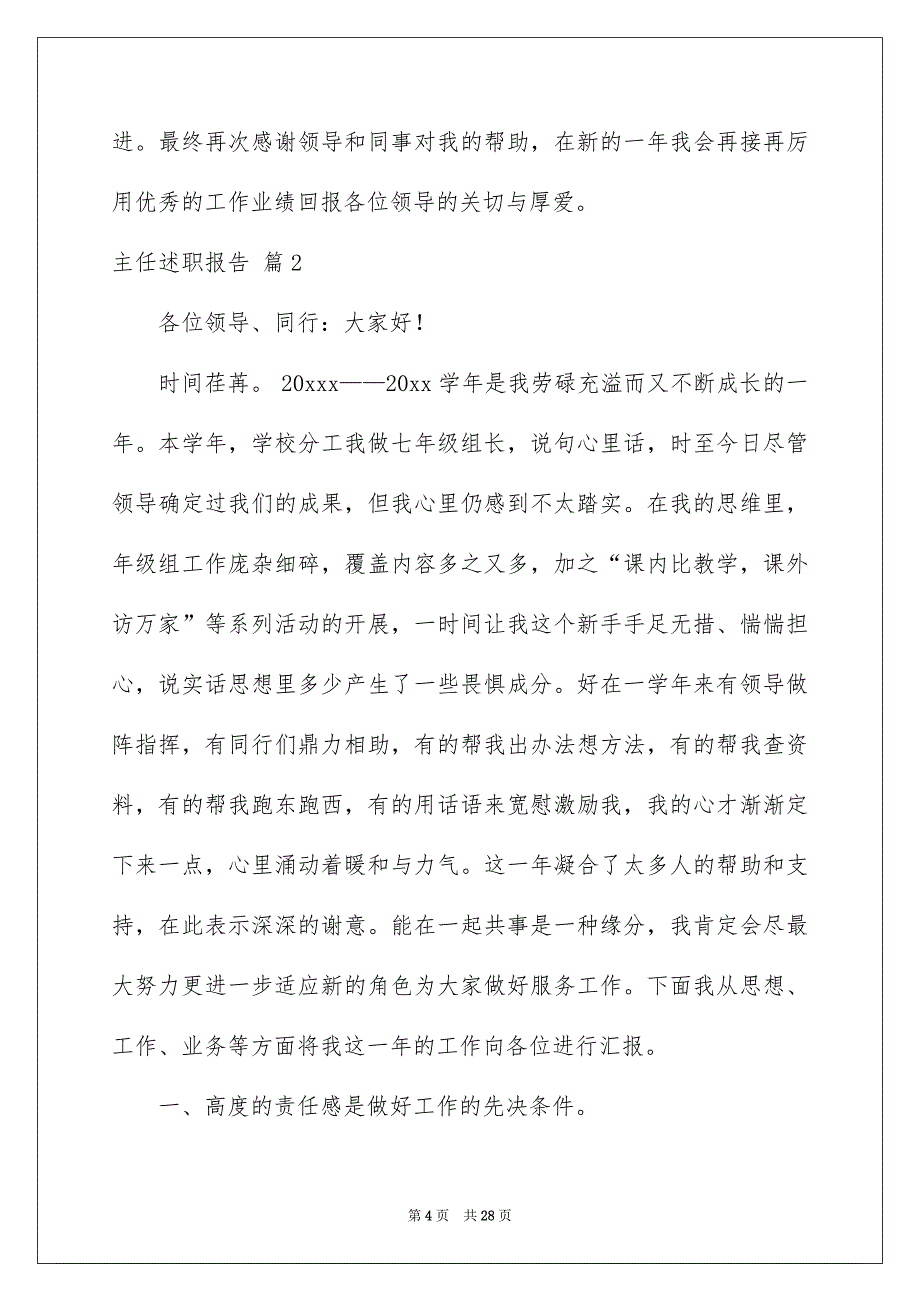 进。最终再次感谢领导和同事对我的帮助，在新的一年我会再接再厉
用优秀的工作业绩回报各位领导的关切与厚爱。
主任述职报告 篇2
各位领导、同行：大家好！
时间荏苒。 20xxx——20xx 学年是我劳碌充溢而又不断成长的一
年。本学年，学校分工我做七年级组长，说句心里话，时至今日尽管
领导确定过我们的成果，但我心里仍感到不太踏实。在我的思维里，
年级组工作庞杂细碎，覆盖内容多之又多，加之“课内比教学，课外
访万家”等系列活动的开展，一时间让我这个新手手足无措、惴惴担
心，说实话思想里多少产生了一些畏惧成分。好在一学年来有领导做
阵指挥，有同行们鼎力相助，有的帮我出办法想方法，有的帮我查资
料，有的帮我跑东跑西，有的用话语来宽慰激励我，我的心才渐渐定
下来一点，心里涌动着暖和与力气。这一年凝合了太多人的帮助和支
持，在此表示深深的谢意。能在一起共事是一种缘分，我肯定会尽最
大努力更进一步适应新的角色为大家做好服务工作。下面我从思想、
工作、业务等方面将我这一年的工作向各位进行汇报。
一、高度的责任感是做好工作的先决条件。
第 4 页 共 28 页